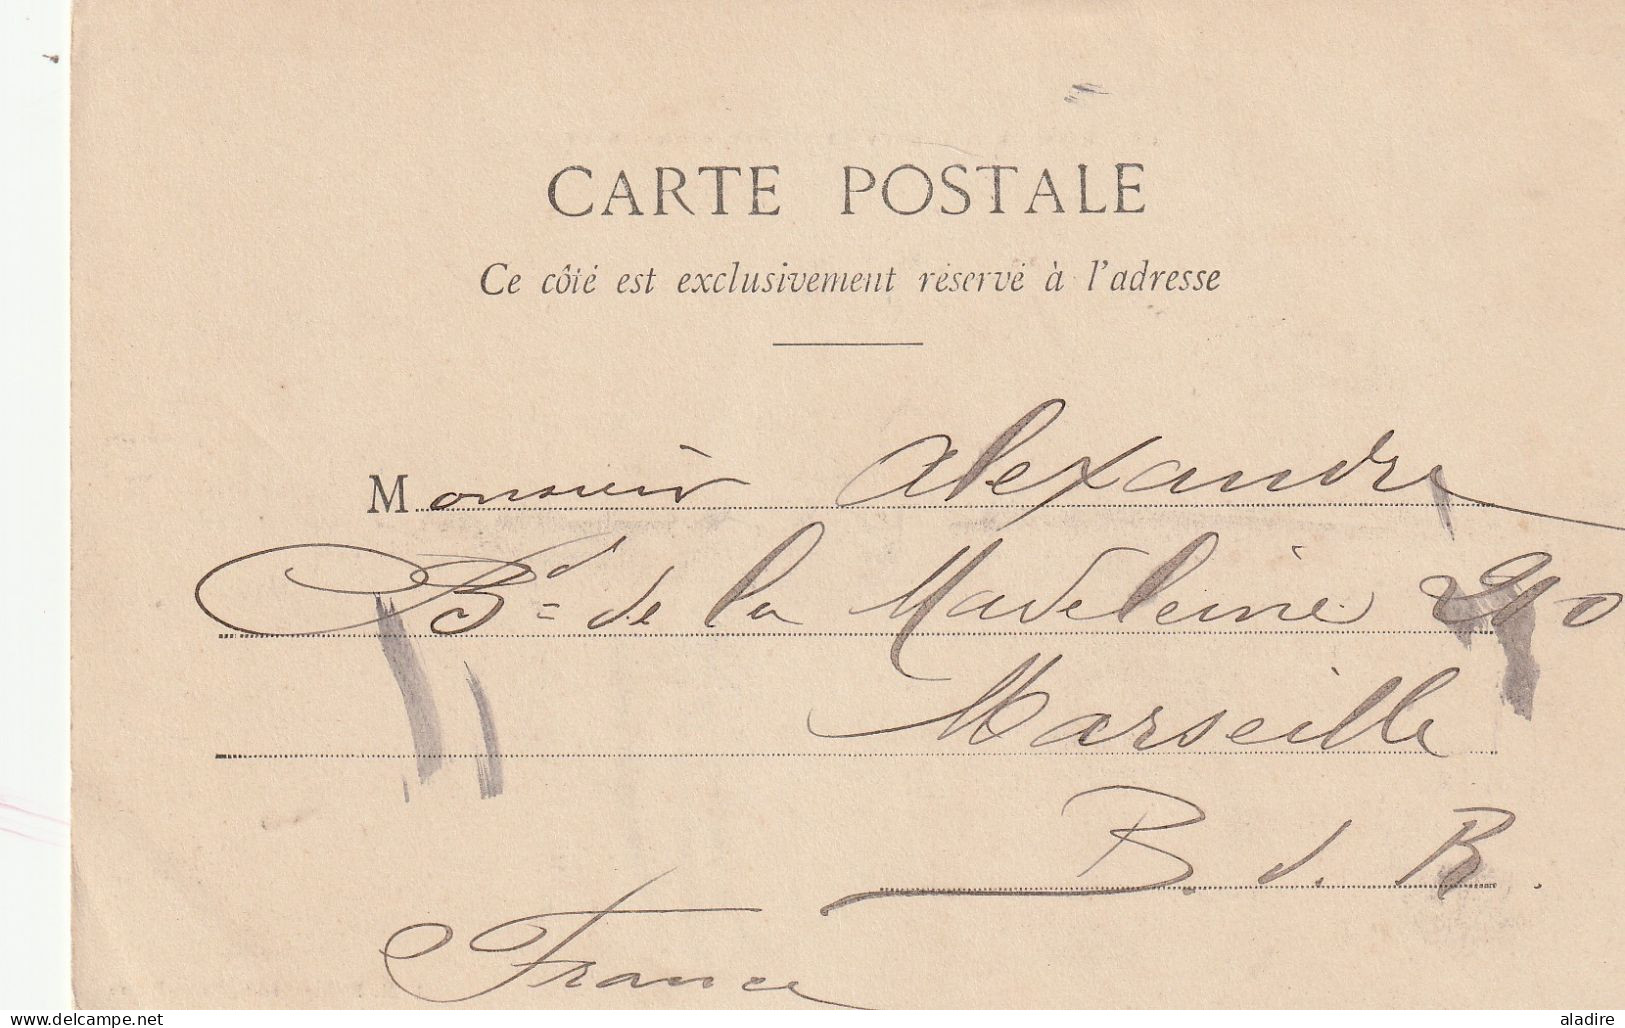 CARTE POSTALE
Ce côté est exclusivement réservé à l'adresse
Monsieur Alexandre
Bd de la Madeleine 210
Marseille
B. d. R.
France
delcampe.net
aladire